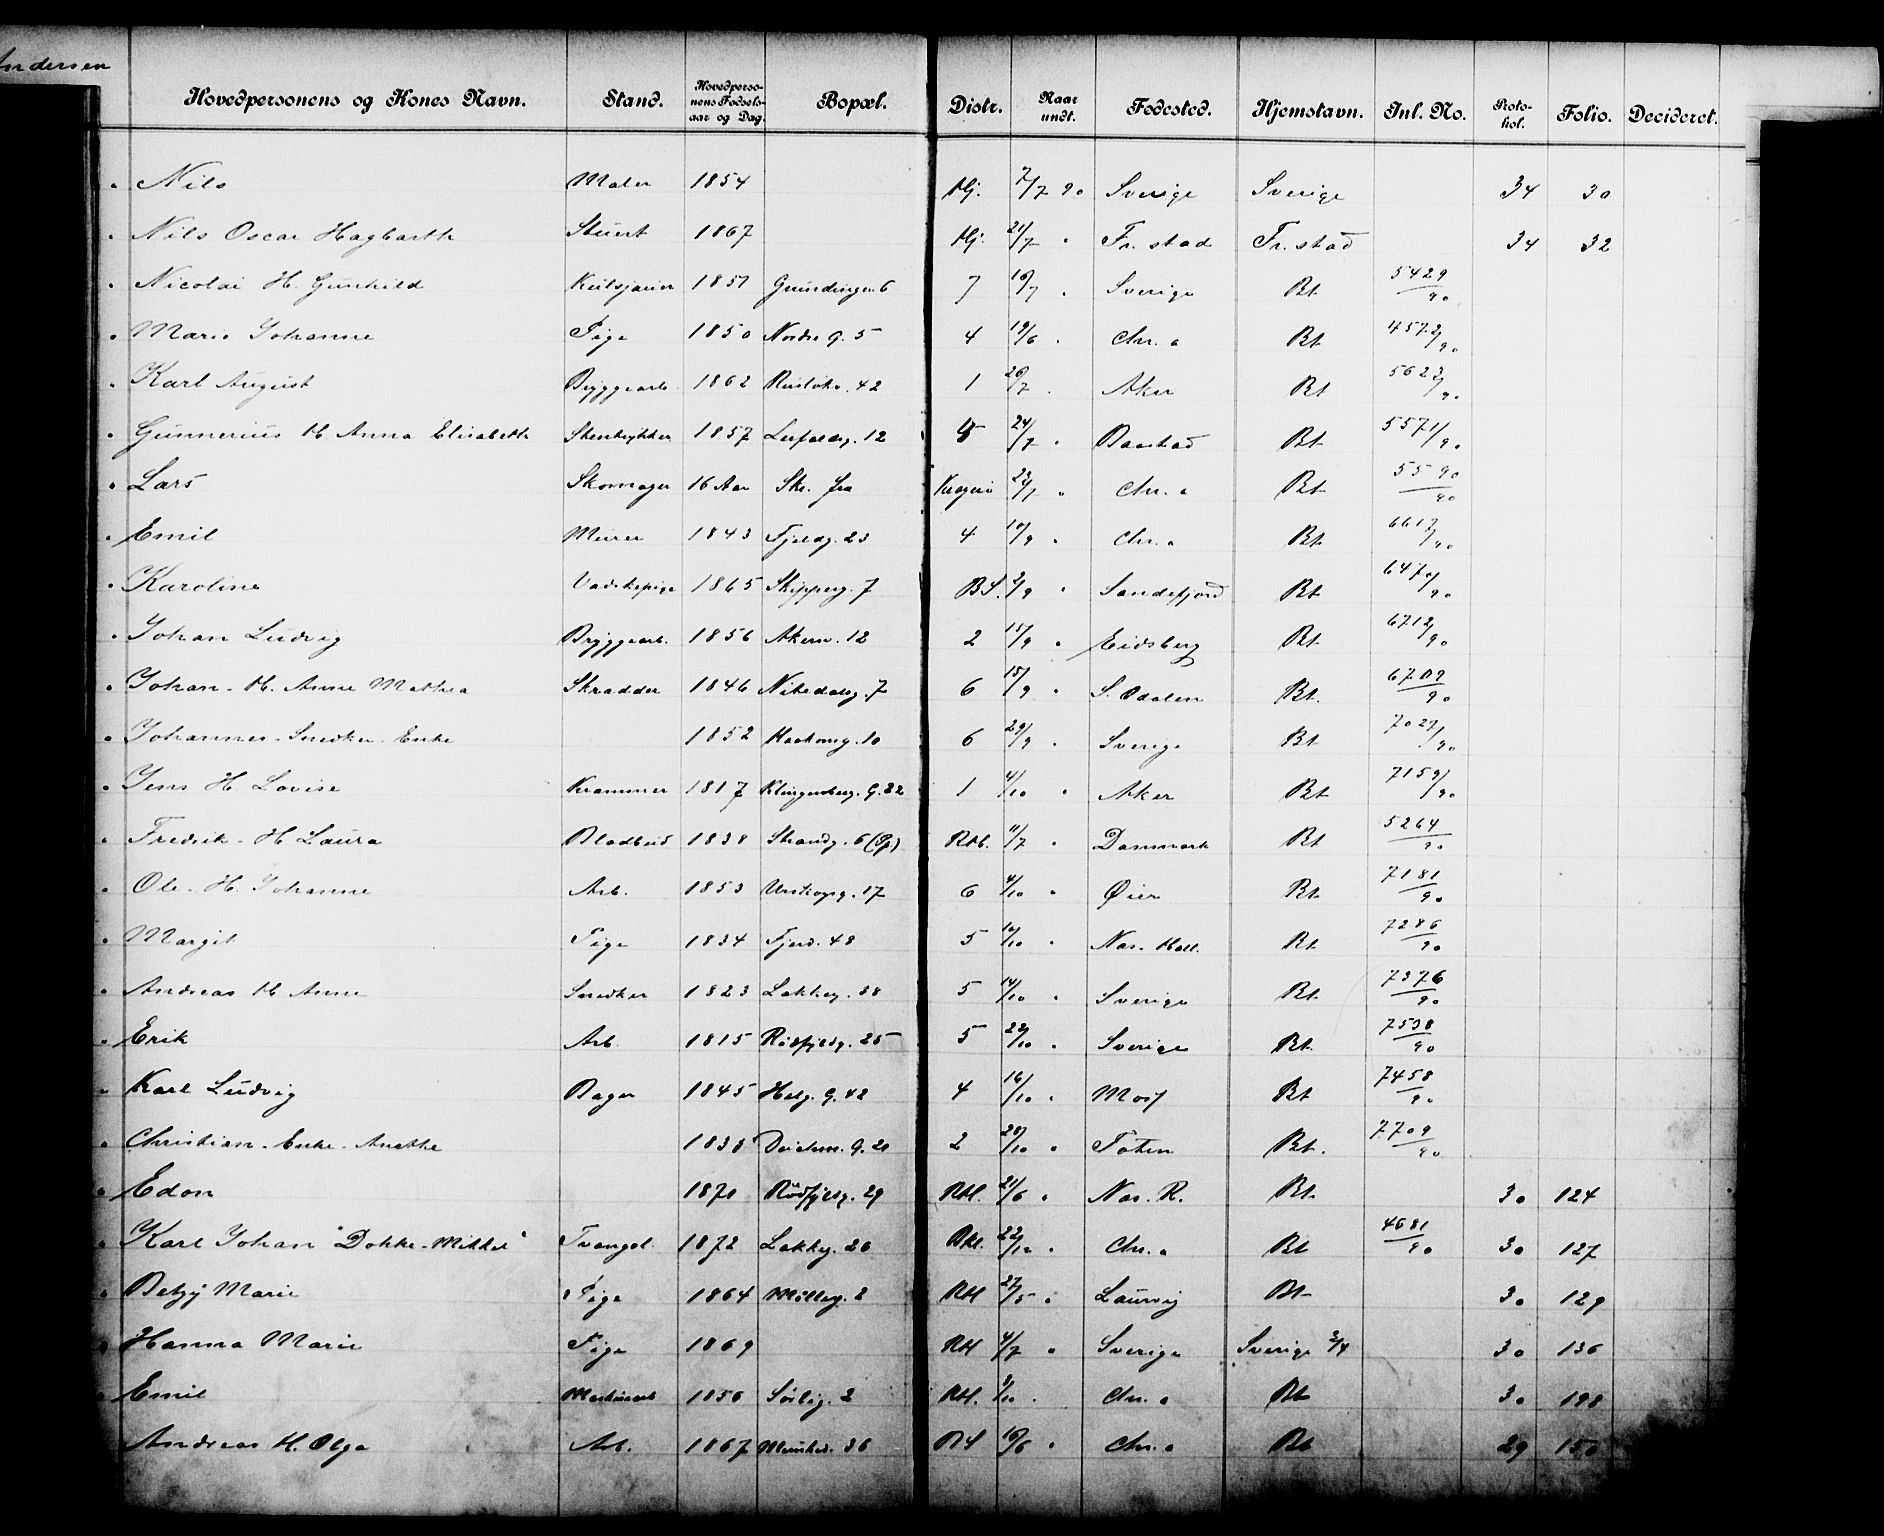 Andersen
Hovedpersonens og Kones Navn. Stand. Hovedperso-nens Fødsels-aar og Dag. Bopæl. Distr. Naar undt. Fødested. Hjemstavn. Inl. No. Proto-kol. Folio. Decideret.
" Nils Maler 1854 Hj. 7/7 90 Sverige Sverige 34 30
" Nils Oscar Hagbarth Stuert 1867 Hj. 21/7 " Fr. stad Fr. stad 34 32
" Nicolai H. Gunhild 1857 6 7 10/7 " Sverige Bt 5429/90
" Marie Johanne Pige 1850 Nordre G. 5 4 19/6 " Chr.a Bt 4572/90
" Karl August Bryggearb. 1862 Rusløkv. 42 1 26/7 " Aker Bt 5623/90
" Gunnerius H. Anna Elisabeth Stentrykker 1857 12 24/7 " Baastad Bt 5571/90
" Lars Skomager 16 Aar Skr. fra Kragerø 23/7 " Chr.a Bt 5590/90
" Emil Murer 1843 Fjeldg. 23 4 10/9 " Chr.a Bt 6617/90
" Karoline Vadskepige 1865 Skipperg. 7 BS. 2/9 " Sandefjord Bt 6470/90
" Johan Ludvig Bryggearb. 1856 Akersv. 12 2 15/9 " Eidsberg Bt 6712/90
" Johan - H. Anne Mathea Skrædder 1846 Nitedalsg. 7 6 15/9 " S. Odalen Bt. 6709/90
" Johannes - Snedker - Enke 1852 Haakonsg. 10 6 29/9 " Sverige Bt 7027/90
" Jens H. Lovise Kræmmer 1817 Klingenberg. G. 22 1 4/10 " Aker Bt 7159/90
" Fredrik - H Laura Bladbud 1838 Strandg. 6 Rtl. 11/7 " Danmark Bt 5264/90
" Ole - H. Johanne Arb. 1853 Urskogsg. 17 6 4/10 " Øier Bt 7181/90
" Margit Pige 1834 Fjerd. 48 5 10/10 " Nas. Hall. Bt 7286/90
" Andreas H Anne Snedker 1823 Lakkeg. 38 5 14/10 " Sverige Bt 7376/90
" Erik Arb. 1815 Rødfjeldg. 25 5 22/10 " Sverige Bt. 7538/90
" Karl Ludvig Bager 1845 Helg. G. 42 4 16/10 " Moss Bt 7458/90
" Christian - Enke - Anethe 1833 G. 20 2 28/10 " Toten Bt. 7709/90
" Edon 1870 Rødfjeldg. 29 Rtl. 21/6 " Nas. R. Bt 30 124
" Karl Johan "Dokke-Mikkel" Tvangsl. 1872 Lakkeg. 26 22/12 " Chr.a Bt 4681/90 30 127
" Betzy Marie Pige 1864 Mølleg. 2 Rtl 27/5 " Laurvig Bt 30 129
" Hanna Marie Pige 1869 Rtl 4/7 " Sverige Sverige 2/4 30 136
" Emil 1856 Sørlig. 2 Rtl. 3/10 " Chr.a Bt 30 198
Andreas H. Olga Arb. 1867 Munked. 36 10/6 " Chr.a Bt 29 150